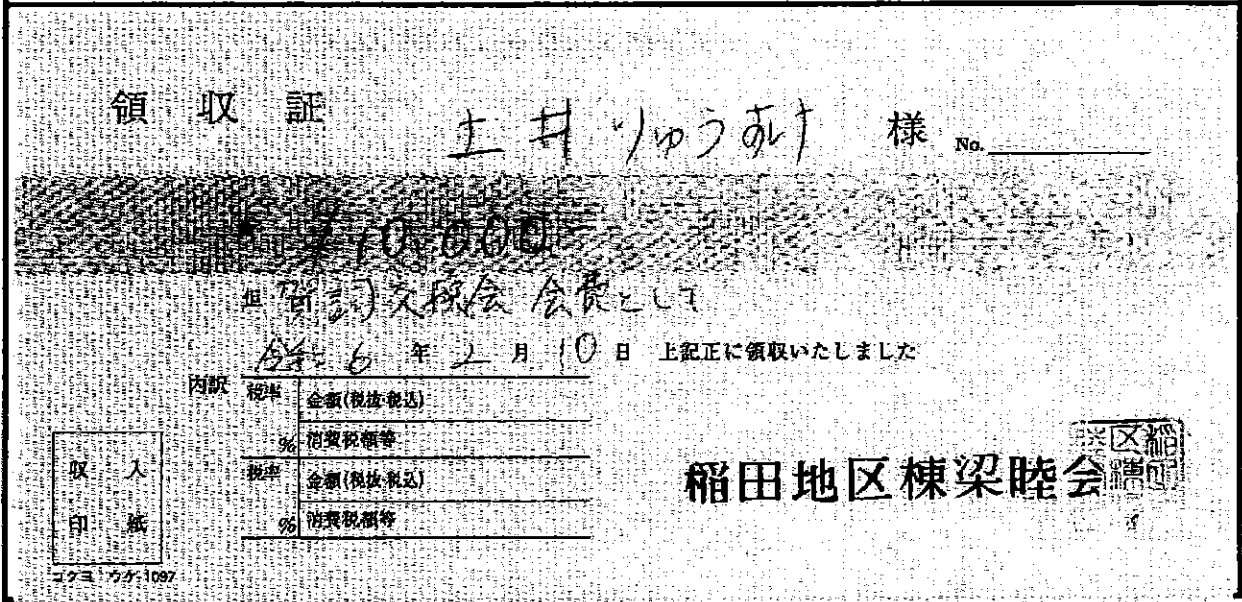 領収証 土井りゅうすけ 様 No.
¥10,000
但 賀詞交換会 会費として
令和 6 年 2 月 10 日 上記正に領収いたしました
内訳 税率 金額(税抜・税込)
% 消費税額等
税率 金額(税抜・税込)
% 消費税額等
収入
印紙
稲田地区棟梁睦会
コクヨ ウケ-1097